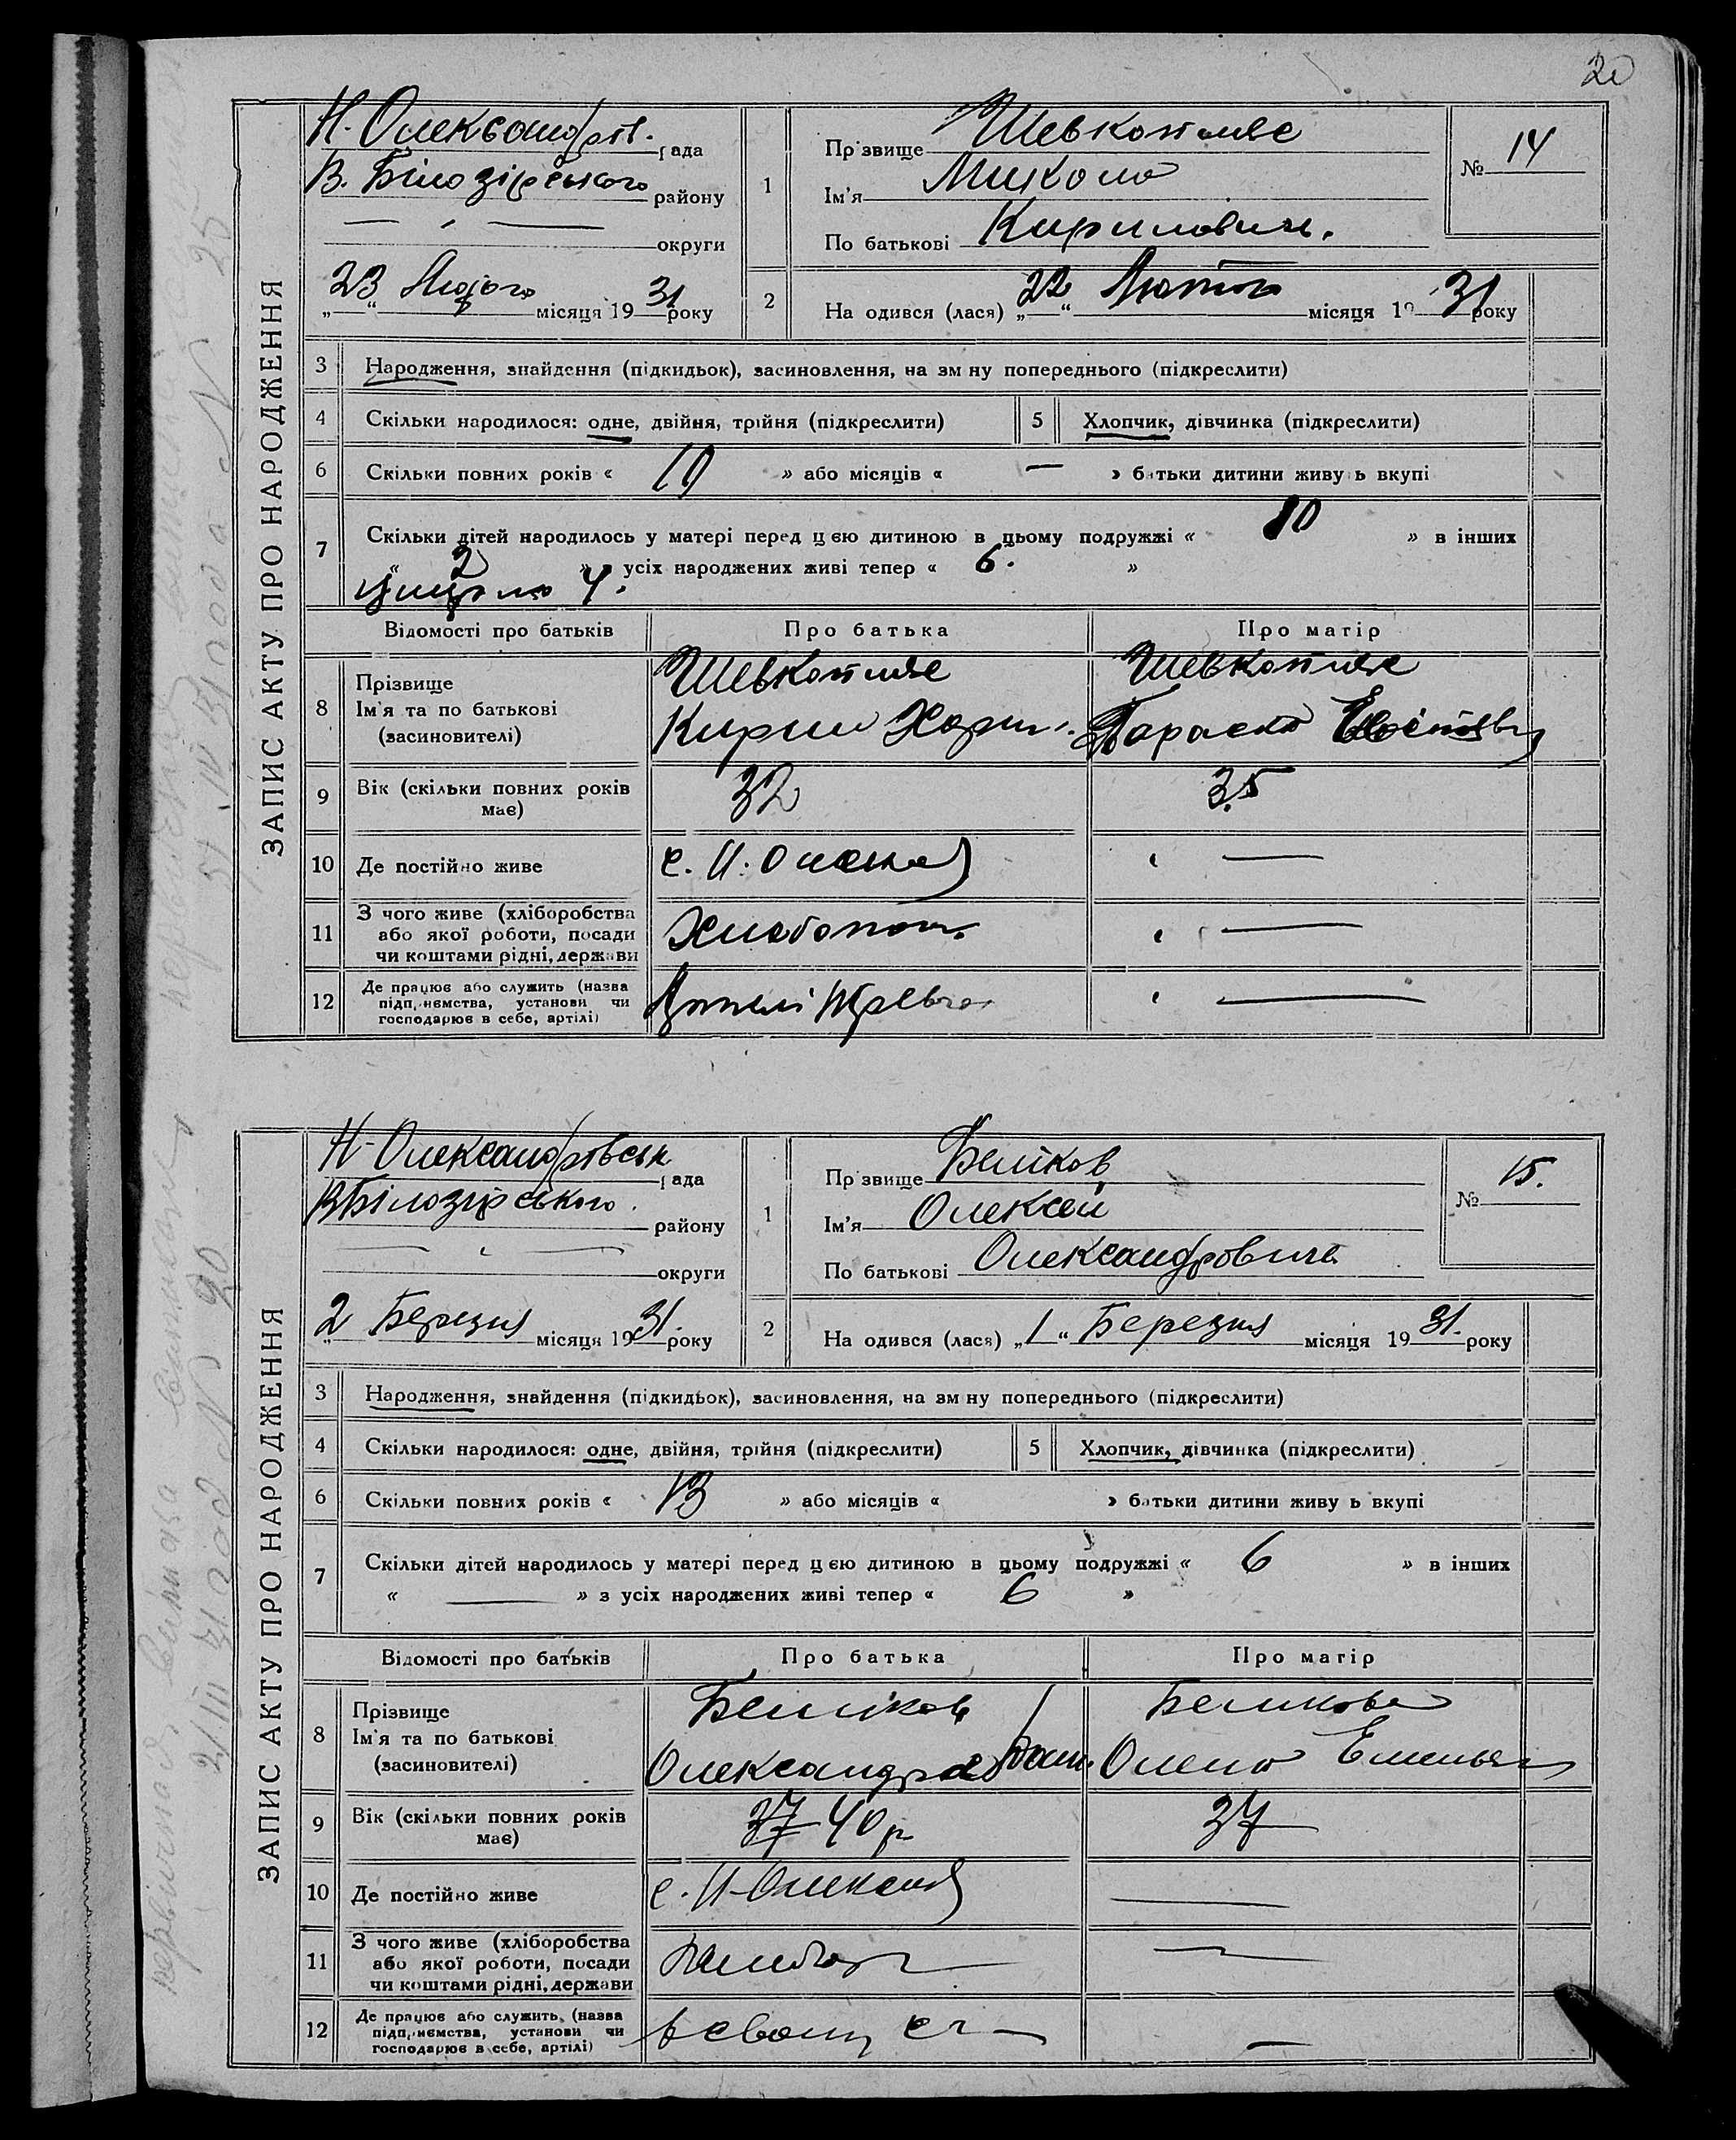 20
ЗАПИС АКТУ ПРО НАРОДЖЕННЯ
Н. Олександрів. рада
В. Білозірського району
округи
23 Лютого місяця 1931 року
1
Прізвище Шевкопляс
Ім'я Микола
По батькові Кирилович.
№ 14
2
На одився (лася) „22“ Лютого місяця 1931 року
3 Народження, знайдення (підкидьок), засиновлення, на зм ну попереднього (підкреслити)
4 Скільки народилося: одне, двійня, трійня (підкреслити)
5 Хлопчик, дівчинка (підкреслити)
6 Скільки повних років « » або місяців « — » батьки дитини живу ь вкупі
7 Скільки дітей народилось у матері перед цією дитиною в цьому подружжі « 10 » в інших
« 2 » з усіх народжених живі тепер « 6. »
4.
Відомості про батьків Про батька Про матір
8 Прізвище
Ім'я та по батькові
(засиновителі)
Шевкопляс
Кирил Хари.
Шевкопляс
Параска
9 Вік (скільки повних років має) 32 35
10 Де постійно живе с. Н. Олександ „ —
11 З чого живе (хліборобства
або якої роботи, посади
чи коштами рідні, держави
Хлебопаш. „ —
12 Де працює або служить (назва
підприємства, установи чи
господарює в себе, артілі)
Артилі „ —
ЗАПИС АКТУ ПРО НАРОДЖЕННЯ
Н-Олександрівськ рада
В Білозірського району
округи
2 Березня місяця 1931. року
1
Прізвище Беліков
Ім'я Олексей
По батькові Олександрович
№ 15.
2
На одився (лася) „1“ Березня місяця 1931. року
3 Народження, знайдення (підкидьок), засиновлення, на зм ну попереднього (підкреслити)
4 Скільки народилося: одне, двійня, трійня (підкреслити)
5 Хлопчик, дівчинка (підкреслити)
6 Скільки повних років « 13 » або місяців « » батьки дитини живу ь вкупі
7 Скільки дітей народилось у матері перед цією дитиною в цьому подружжі « 6 » в інших
« — » з усіх народжених живі тепер « 6 »
Відомості про батьків Про батька Про матір
8 Прізвище
Ім'я та по батькові
(засиновителі)
Беліков
Олександра
Беликова
Олена Емельян
9 Вік (скільки повних років має) 37 40 р 37
10 Де постійно живе с. Н-Олександ —
11 З чого живе (хліборобства
або якої роботи, посади
чи коштами рідні, держави
—
12 Де працює або служить (назва
підприємства, установи чи
господарює в себе, артілі)
в своїму —